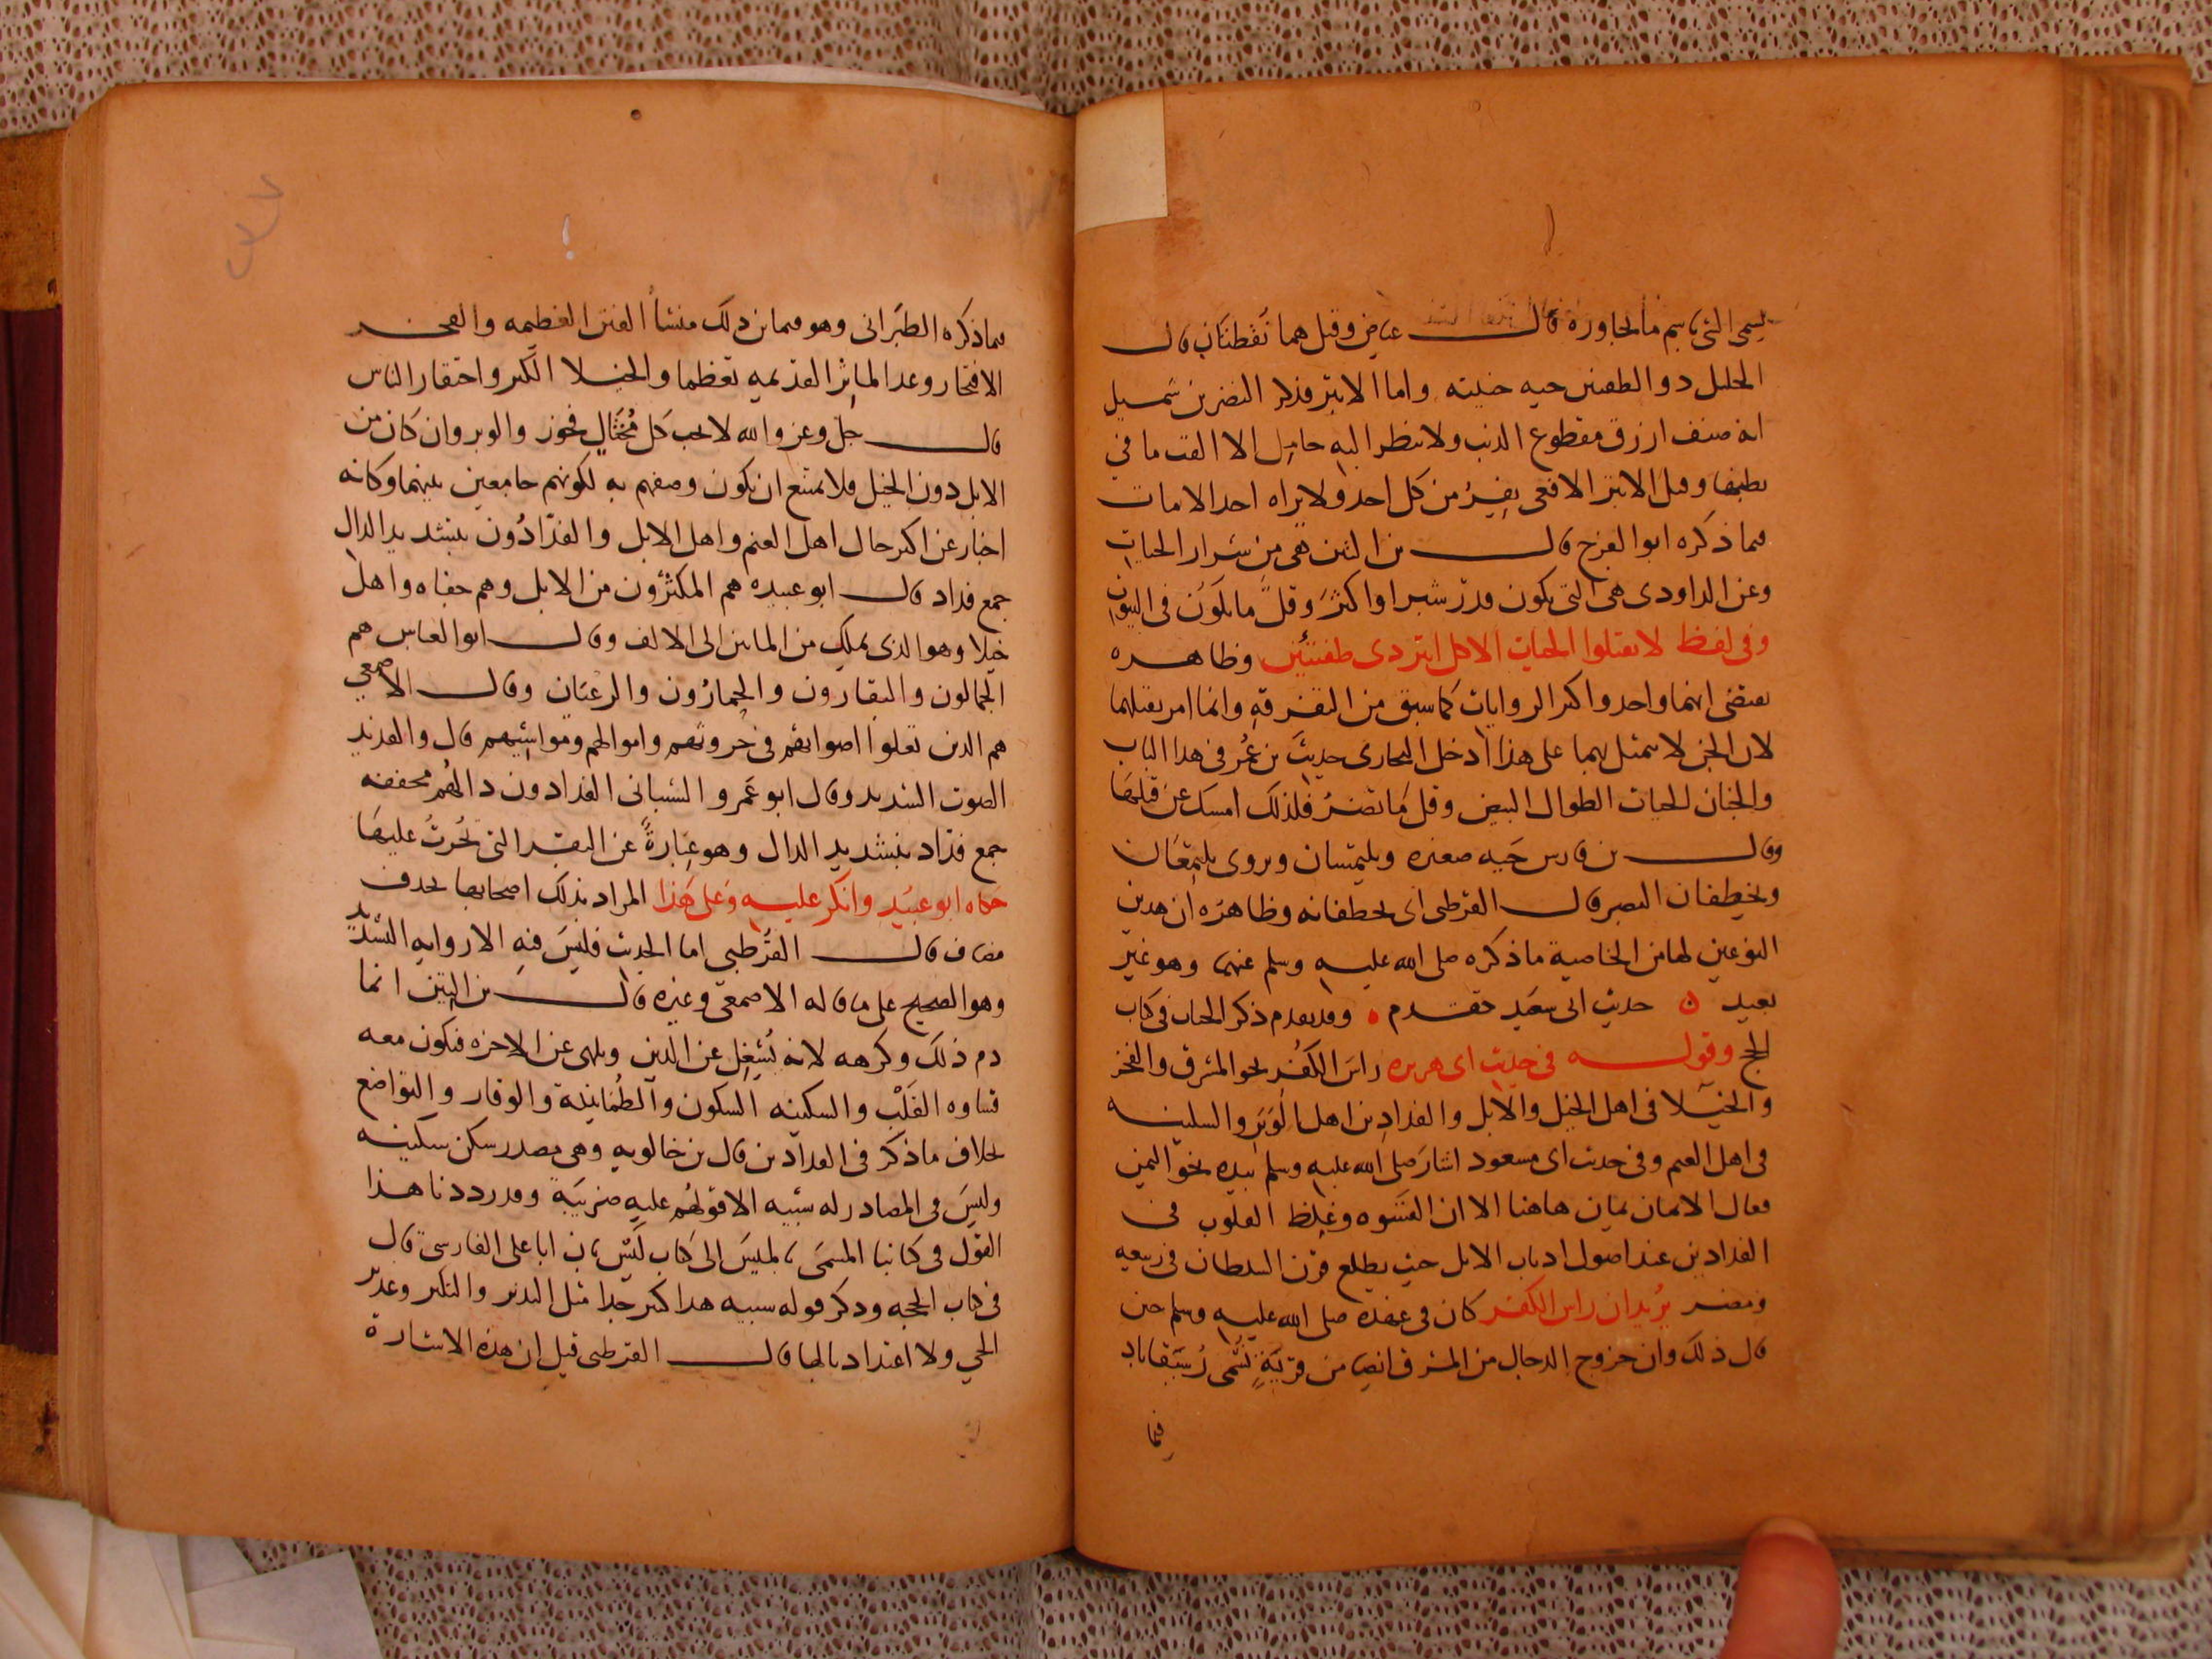 يسمى الشئ باسم ما لمجاورة قال عياض وقيل هما نقطتان قال
الخليل ذو الطفيتين حيه خبيثه واما الابتر فذكر النضر بن شميل
انه صنف ازرق مقطوع الذنب ولا ينظر اليه حامل الا القت ما في
بطنها وقيل الابتر الافعى يفر من كل احد ولا يراه احد الا مات
مما ذكره ابو الفرج قال بن التين هي من شرار الحيات
وعن الداودى هى التى يكون قدر شبر او اكثر وقل ما يكون فى البيوت
وفى لفظ لا تقتلوا الحيات الا كل ابتر ذى طفيتين وظاهره
يقتضى انهما واحد واكثر الروايات كما سبق من التفرقه وانما امر بقتلهما
لان الجن لا تتمثل بهما على هذا ادخل البخارى حديث بن عمر فى هذا الباب
والجنان الحيات الطوال البيض وقل ما تضر فلذلك امسك عن قتلها
وقال بن فارس حيه صغيره ويلتمسان ويروى يلتمعان
ويخطفان البصر قال القرطبى اى يخطفانه وظاهره ان هذين
النوعين لهما من الخاصية ما ذكره صلى الله عليه وسلم عنهما وهو غير
بعيد ن حديث ابى سعيد تقدم ه وقد تقدم ذكر الجنان فى كتاب
الحج وقوله فى حديث ابى هريره راس الكفر نحو المشرق والفخر
والخيلا فى اهل الخيل والابل والفدادين اهل الوبر والسكينه
فى اهل الغنم وفى حديث ابى مسعود اشار صلى الله عليه وسلم بيده نحو اليمن
فقال الايمان يمان هاهنا الا ان القسوه وغلظ القلوب فى
الفدادين عند اصول اذناب الابل حيث يطلع قرن الشيطان فى ربيعه
ومضر يريد ان راس الكفر كان فى عهده صلى الله عليه وسلم حين
قال ذلك وان خروج الدجال من المشرق ايضا من قرية تسمى رستقاباد
فيما
فيما ذكره الطبرانى وهو فيما بين ذلك منشأ الفتن العظيمه والفخر
الافتخار وعد الماثر القديمه تعظما والخيلا الكبر واحتقار الناس
قال جل وعز والله لا يحب كل مختال فخور والوبر وان كان من
الابل دون الخيل فلا يمتنع ان يكون وصفهم به لكونهم جامعين بينهما وكانه
اخبار عن اكثر حال اهل الغنم واهل الابل والفدادون بتشديد الدال
جمع فداد قال ابو عبيده هم المكثرون من الابل وهم جفاه واهل
خيلا وهو الذى يملك من المايتين الى الالف وقال ابو العباس هم
الجمالون والبقارون والحمارون والرعيان وقال الاصمعي
هم الذين تعلوا اصواتهم فى حروثهم واموالهم ومواشيهم قال والفديد
الصوت الشديد وقال ابو عمرو الشيبانى الفدادون دالهم مخففه
جمع فداد بتشديد الدال وهو عبارة عن البقر التى تحرث عليها
حكاه ابو عبيد وانكر عليه وعلى هذا المراد بذلك اصحابها بحذف
مضاف قال القرطبى اما الحديث فليس فيه الا رواية التشديد
وهو الصحيح على ما قاله الاصمعى وغيره قال بن التين انما
ذم ذلك وكرهه لانه يشغل عن الدين ويلهى عن الاخره فتكون معه
قساوه القلب والسكينه السكون والطمانينة والوقار والتواضع
بخلاف ما ذكر فى الفدادين قال بن خالويه وهى مصدر سكن سكينه
وليس فى المصادر له شبيه الا قولهم عليه ضريبة وقد رددنا هذا
القول فى كتابنا المسمى بالميس الى كتاب ليس بان ابا على الفارسى قال
فى كتاب الحجه وذكر قوله سيبويه هذا كثير جدا مثل النذير والنكير وعذير
الحي ولا اعتداد بالها قال القرطبى قيل ان هذه الاشارة